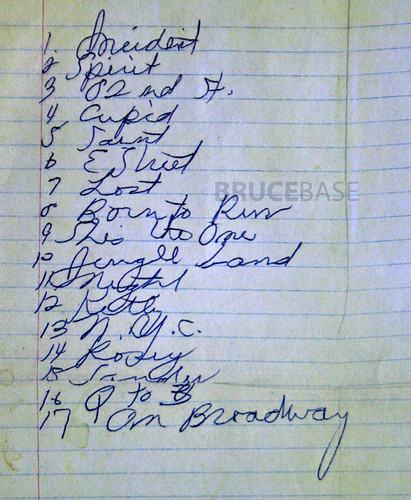 1. Incident
2 Spirit
3 82nd St.
4 Cupid
5 Saint
6 E Street
7 Lost
BRUCEBASE
8 Born to Run
9 Shes the One
10 Jungle Land
11 Night
12 Kitty
13 N.Y.C.
14 Rosey
15 Sandy
16 Q to B
17 On Broadway